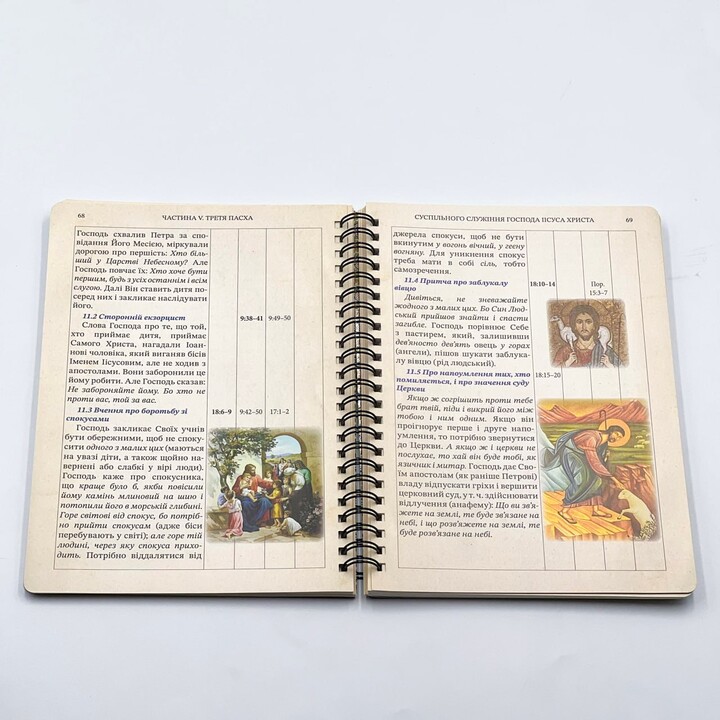 68
ЧАСТИНА V. ТРЕТЯ ПАСХА
Господь схвалив Петра за спо-
відання Його Месією, міркували
дорогою про першість: Хто біль-
ший у Царстві Небесному? Але
Господь повчає їх: Хто хоче бути
першим, будь з усіх останнім і всім
слугою. Далі Він ставить дитя по-
серед них і закликає наслідувати
його.
11.2 Сторонній екзорцист
9:38–41 9:49–50
Слова Господа про те, що той,
хто приймає дитя, приймає
Самого Христа, нагадали Іоан-
нові чоловіка, який виганяв бісів
Іменем Ісусовим, але не ходив з
апостолами. Вони заборонили це
йому робити. Але Господь сказав:
Не забороняйте йому. Бо хто не
проти вас, той за вас.
11.3 Вчення про боротьбу зі
спокусами
18:6–9 9:42–50 17:1–2
Господь закликає Своїх учнів
бути обережними, щоб не споку-
сити одного з малих цих (маються
на увазі діти, а також щойно на-
вернені або слабкі у вірі люди).
Господь каже про спокусника,
що краще було б, якби повісили
йому камінь млиновий на шию і
потопили його в морській глибині.
Горе світові від спокус, бо потріб-
но прийти спокусам (адже біси
перебувають у світі); але горе тій
людині, через яку спокуса прихо-
дить. Потрібно віддалятися від
СУСПІЛЬНОГО СЛУЖІННЯ ГОСПОДА ІІСУСА ХРИСТА
69
джерела спокуси, щоб не бути
вкинутим у вогонь вічний, у геену
вогняну. Для уникнення спокус
треба мати в собі сіль, тобто
самозречення.
11.4 Притча про заблукалу
вівцю
18:10–14
Пор.
15:3–7
Дивіться, не зневажайте
жодного з малих цих. Бо Син Люд-
ський прийшов знайти і спасти
загибле. Господь порівнює Себе
з пастирем, який, залишивши
дев'яносто дев'ять овець у горах
(ангели), пішов шукати заблука-
лу вівцю (рід людський).
11.5 Про напоумлення тих, хто
помиляється, і про значення суду
Церкви
18:15–20
Якщо ж согрішить проти тебе
брат твій, піди і викрий його між
тобою і ним одним. Якщо він
проігнорує перше і друге напо-
умлення, то потрібно звернутися
до Церкви. А якщо ж і церкви не
послухає, то хай він буде тобі, як
язичник і митар. Господь дає Сво-
їм апостолам (як раніше Петрові)
владу відпускати гріхи і вершити
церковний суд, у т. ч. здійснювати
відлучення (анафему): Що ви зв'я-
жете на землі, те буде зв'язане на
небі, і що розв'яжете на землі, те
буде розв'язане на небі.